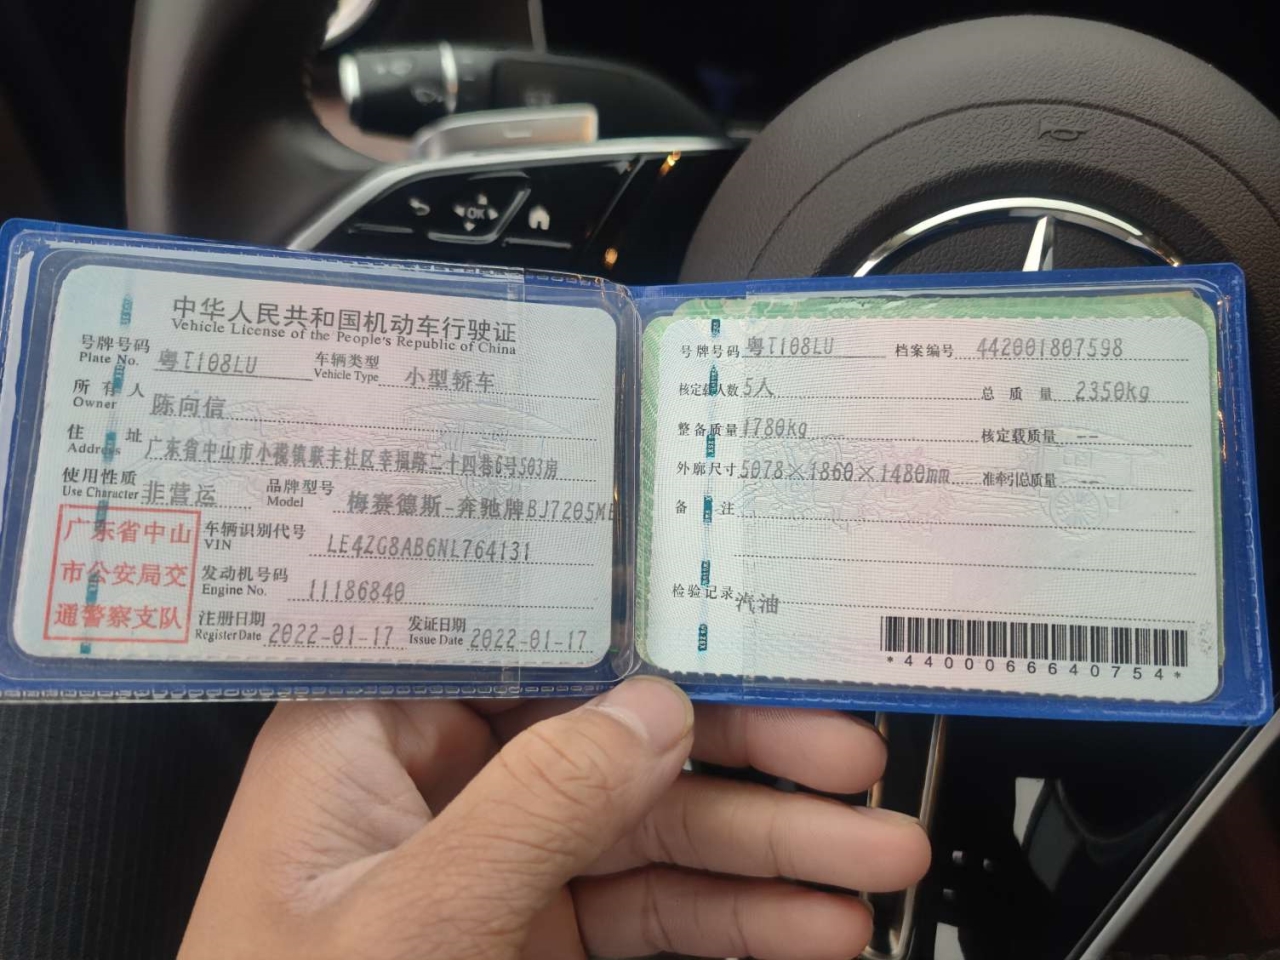 OK
中华人民共和国机动车行驶证
Vehicle License of the People's Republic of China
号牌号码 粤T108LU 车辆类型 小型轿车
Plate No. Vehicle Type
所有人 陈向信
Owner
住址 广东省中山市小榄镇联丰社区幸福路二十四巷6号503房
Address
使用性质 非营运 品牌型号 梅赛德斯-奔驰牌BJ7205ME
Use Character Model
广东省中山
市公安局交
通警察支队
车辆识别代号 LE4ZG8AB6NL764131
VIN
发动机号码 11186840
Engine No.
注册日期 2022-01-17 发证日期 2022-01-17
Register Date Issue Date
号牌号码 粤T108LU 档案编号 442001807598
核定载人数 5人 总质量 2350kg
整备质量 1780kg 核定载质量 --
外廓尺寸 5078×1860×1480mm 准牵引总质量 --
备注
检验记录 汽油
*4400066640754*